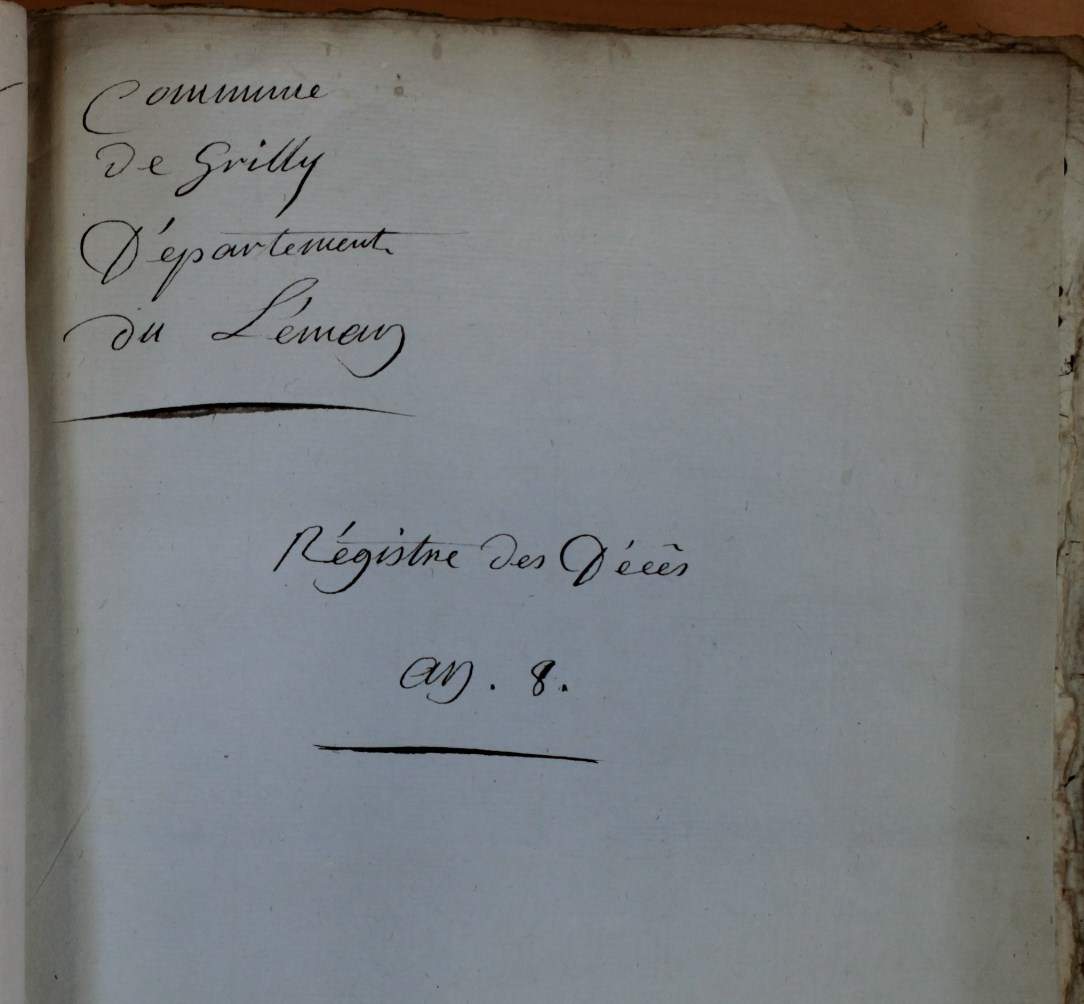 Commune
de Grilly
Département
du Léman
Régistre des Décês
an . 8 .